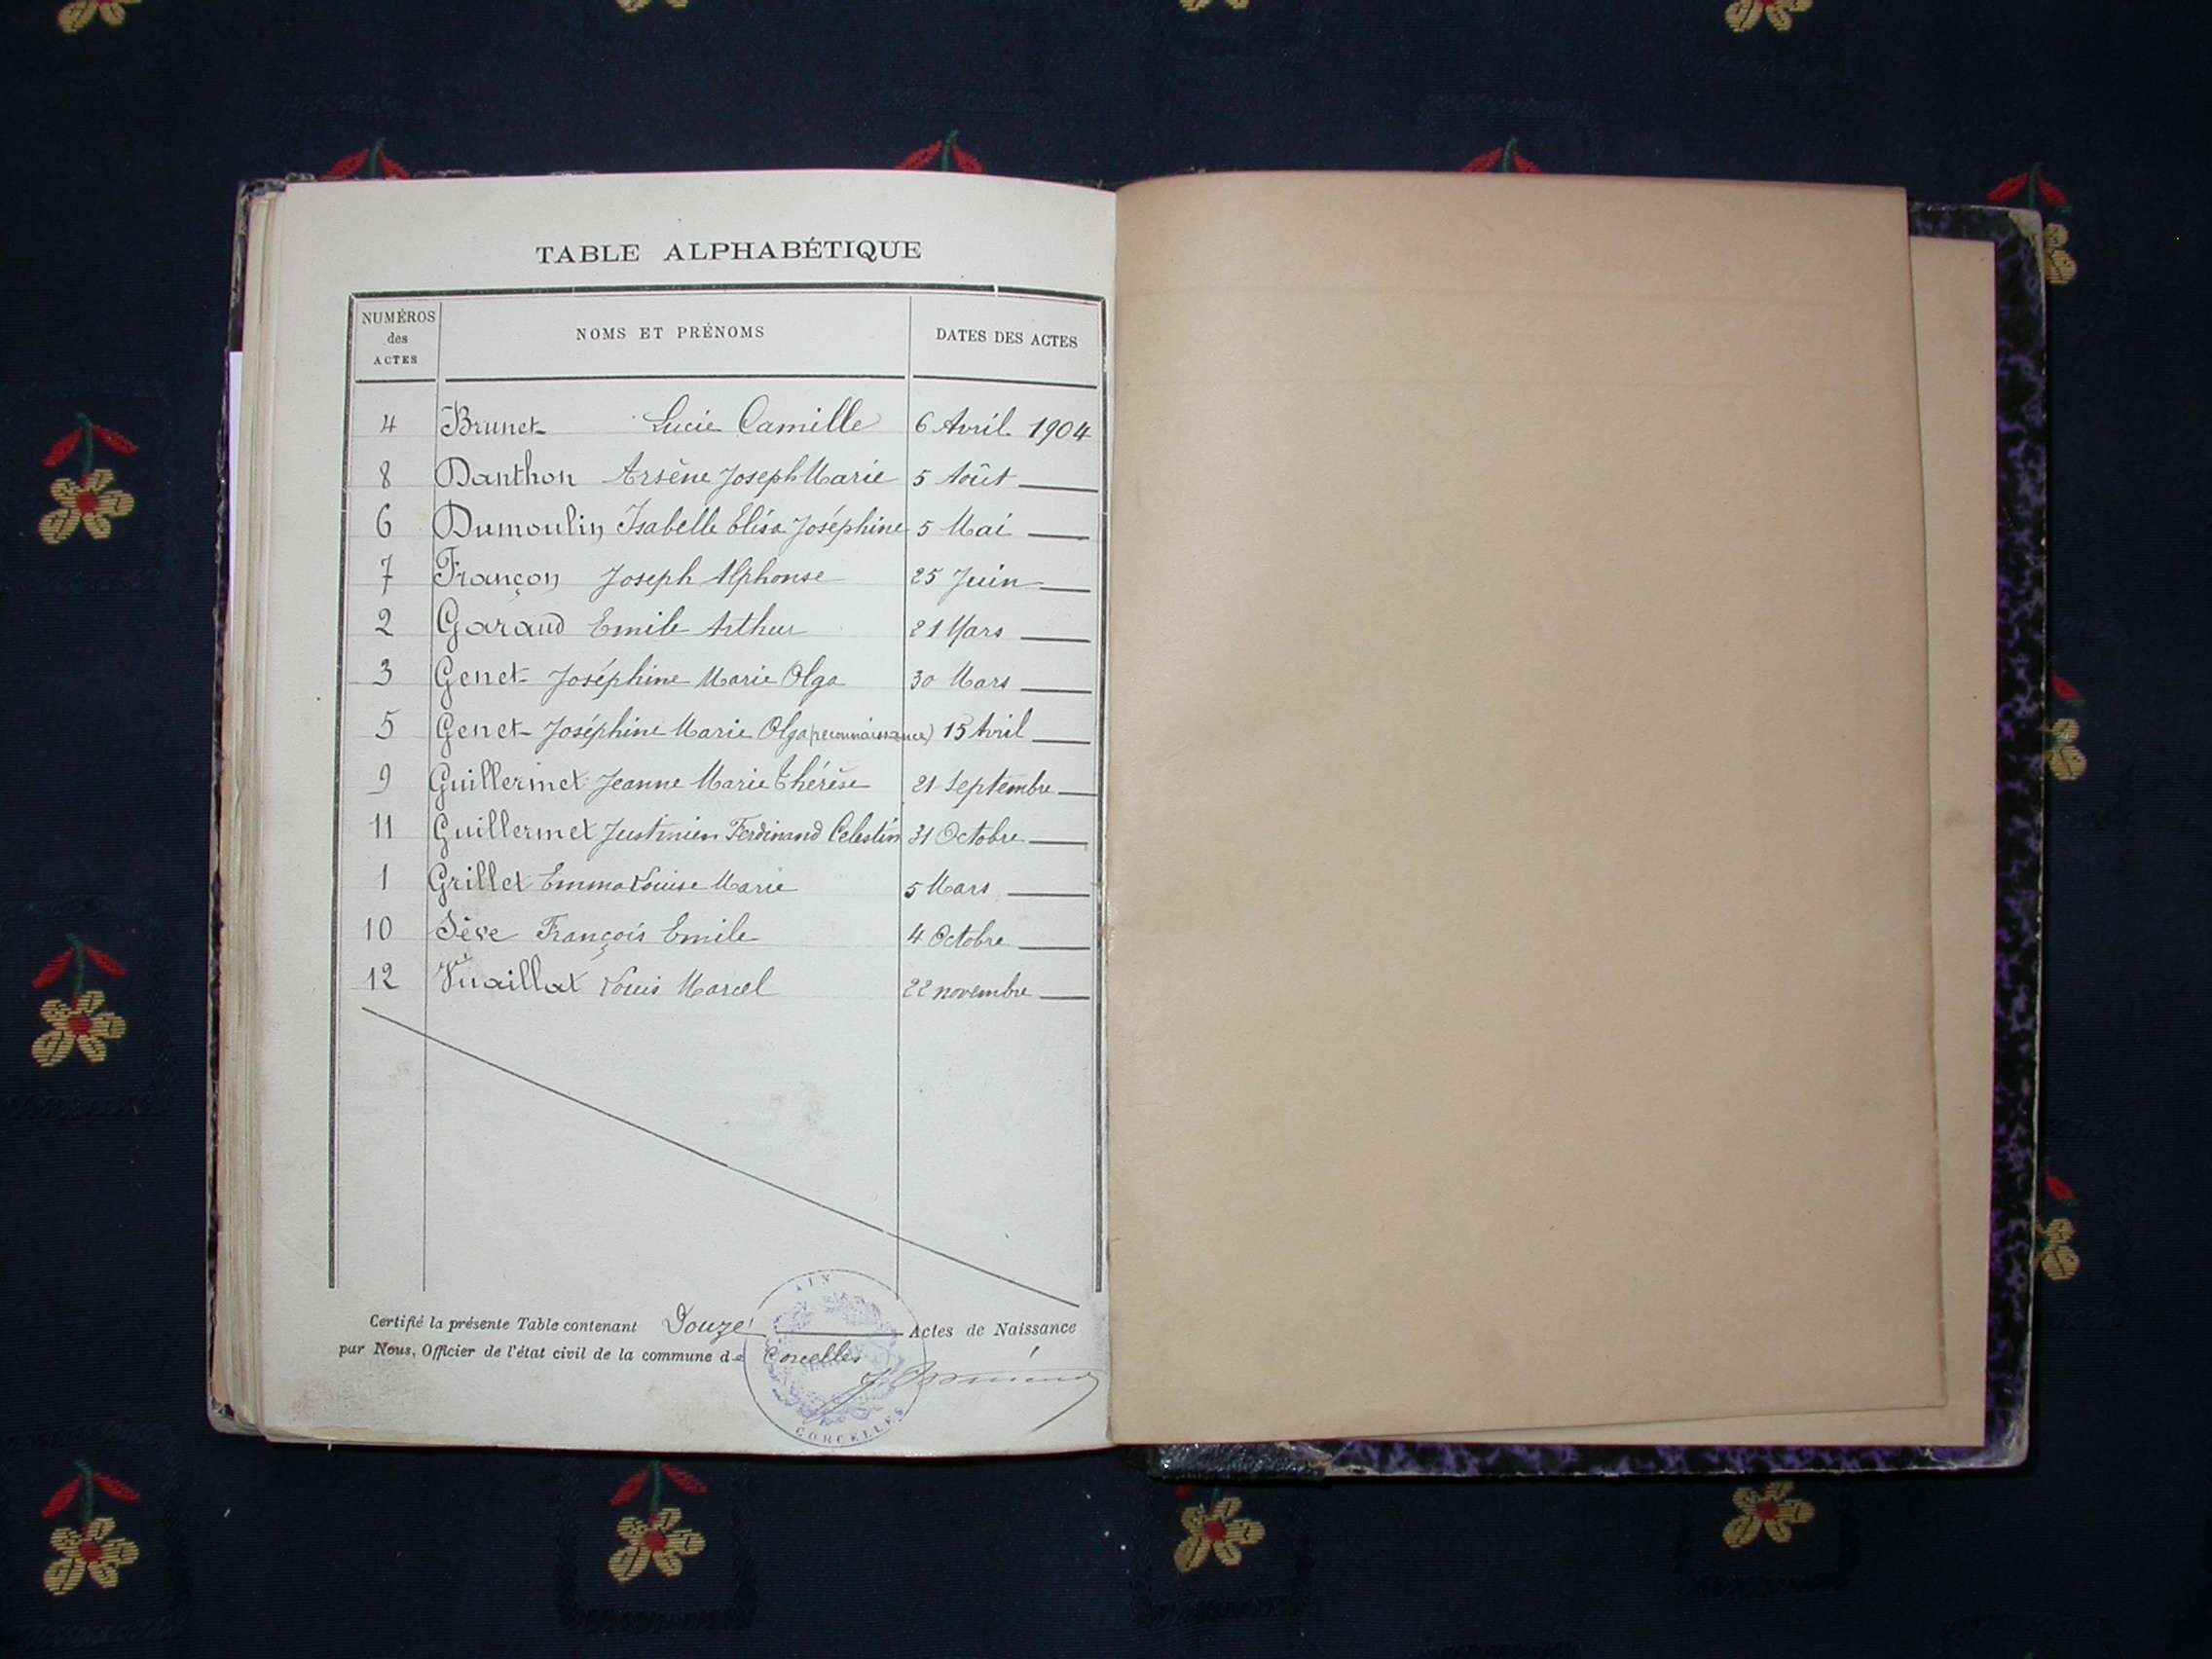 TABLE ALPHABÉTIQUE
NUMÉROS des ACTES NOMS ET PRÉNOMS DATES DES ACTES
4 Brunet Lucie Camille 6 Avril 1904
8 Danthon Arsène Joseph Marie 5 Août
6 Dumoulin Isabelle Elisa Joséphine 5 Mai
7 Françon Joseph Alphonse 25 Juin
2 Garaud Emile Arthur 21 Mars
3 Genet Joséphine Marie Olga 30 Mars
5 Genet Joséphine Marie Olga (reconnaissance) 15 Avril
9 Guillermet Jeanne Marie Thérèse 21 Septembre
11 Guillermet Justinien Ferdinand Celestin 31 Octobre
1 Grillet Emma Louise Marie 5 Mars
10 Sève François Emile 4 Octobre
12 Vuaillat Louis Marcel 22 novembre
Certifié la présente Table contenant Douze Actes de Naissance
par Nous, Officier de l'état civil de la commune de Corcelles
AIN
CORCELLES